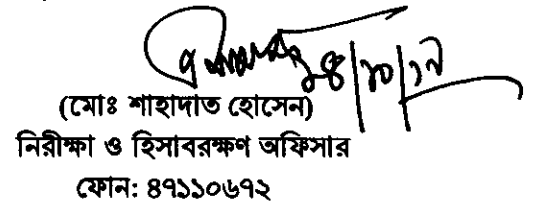 ২৪/১০/১৭
(মোঃ শাহাদাত হোসেন)
নিরীক্ষা ও হিসাবরক্ষণ অফিসার
ফোন: ৪৭১১০৬৭২